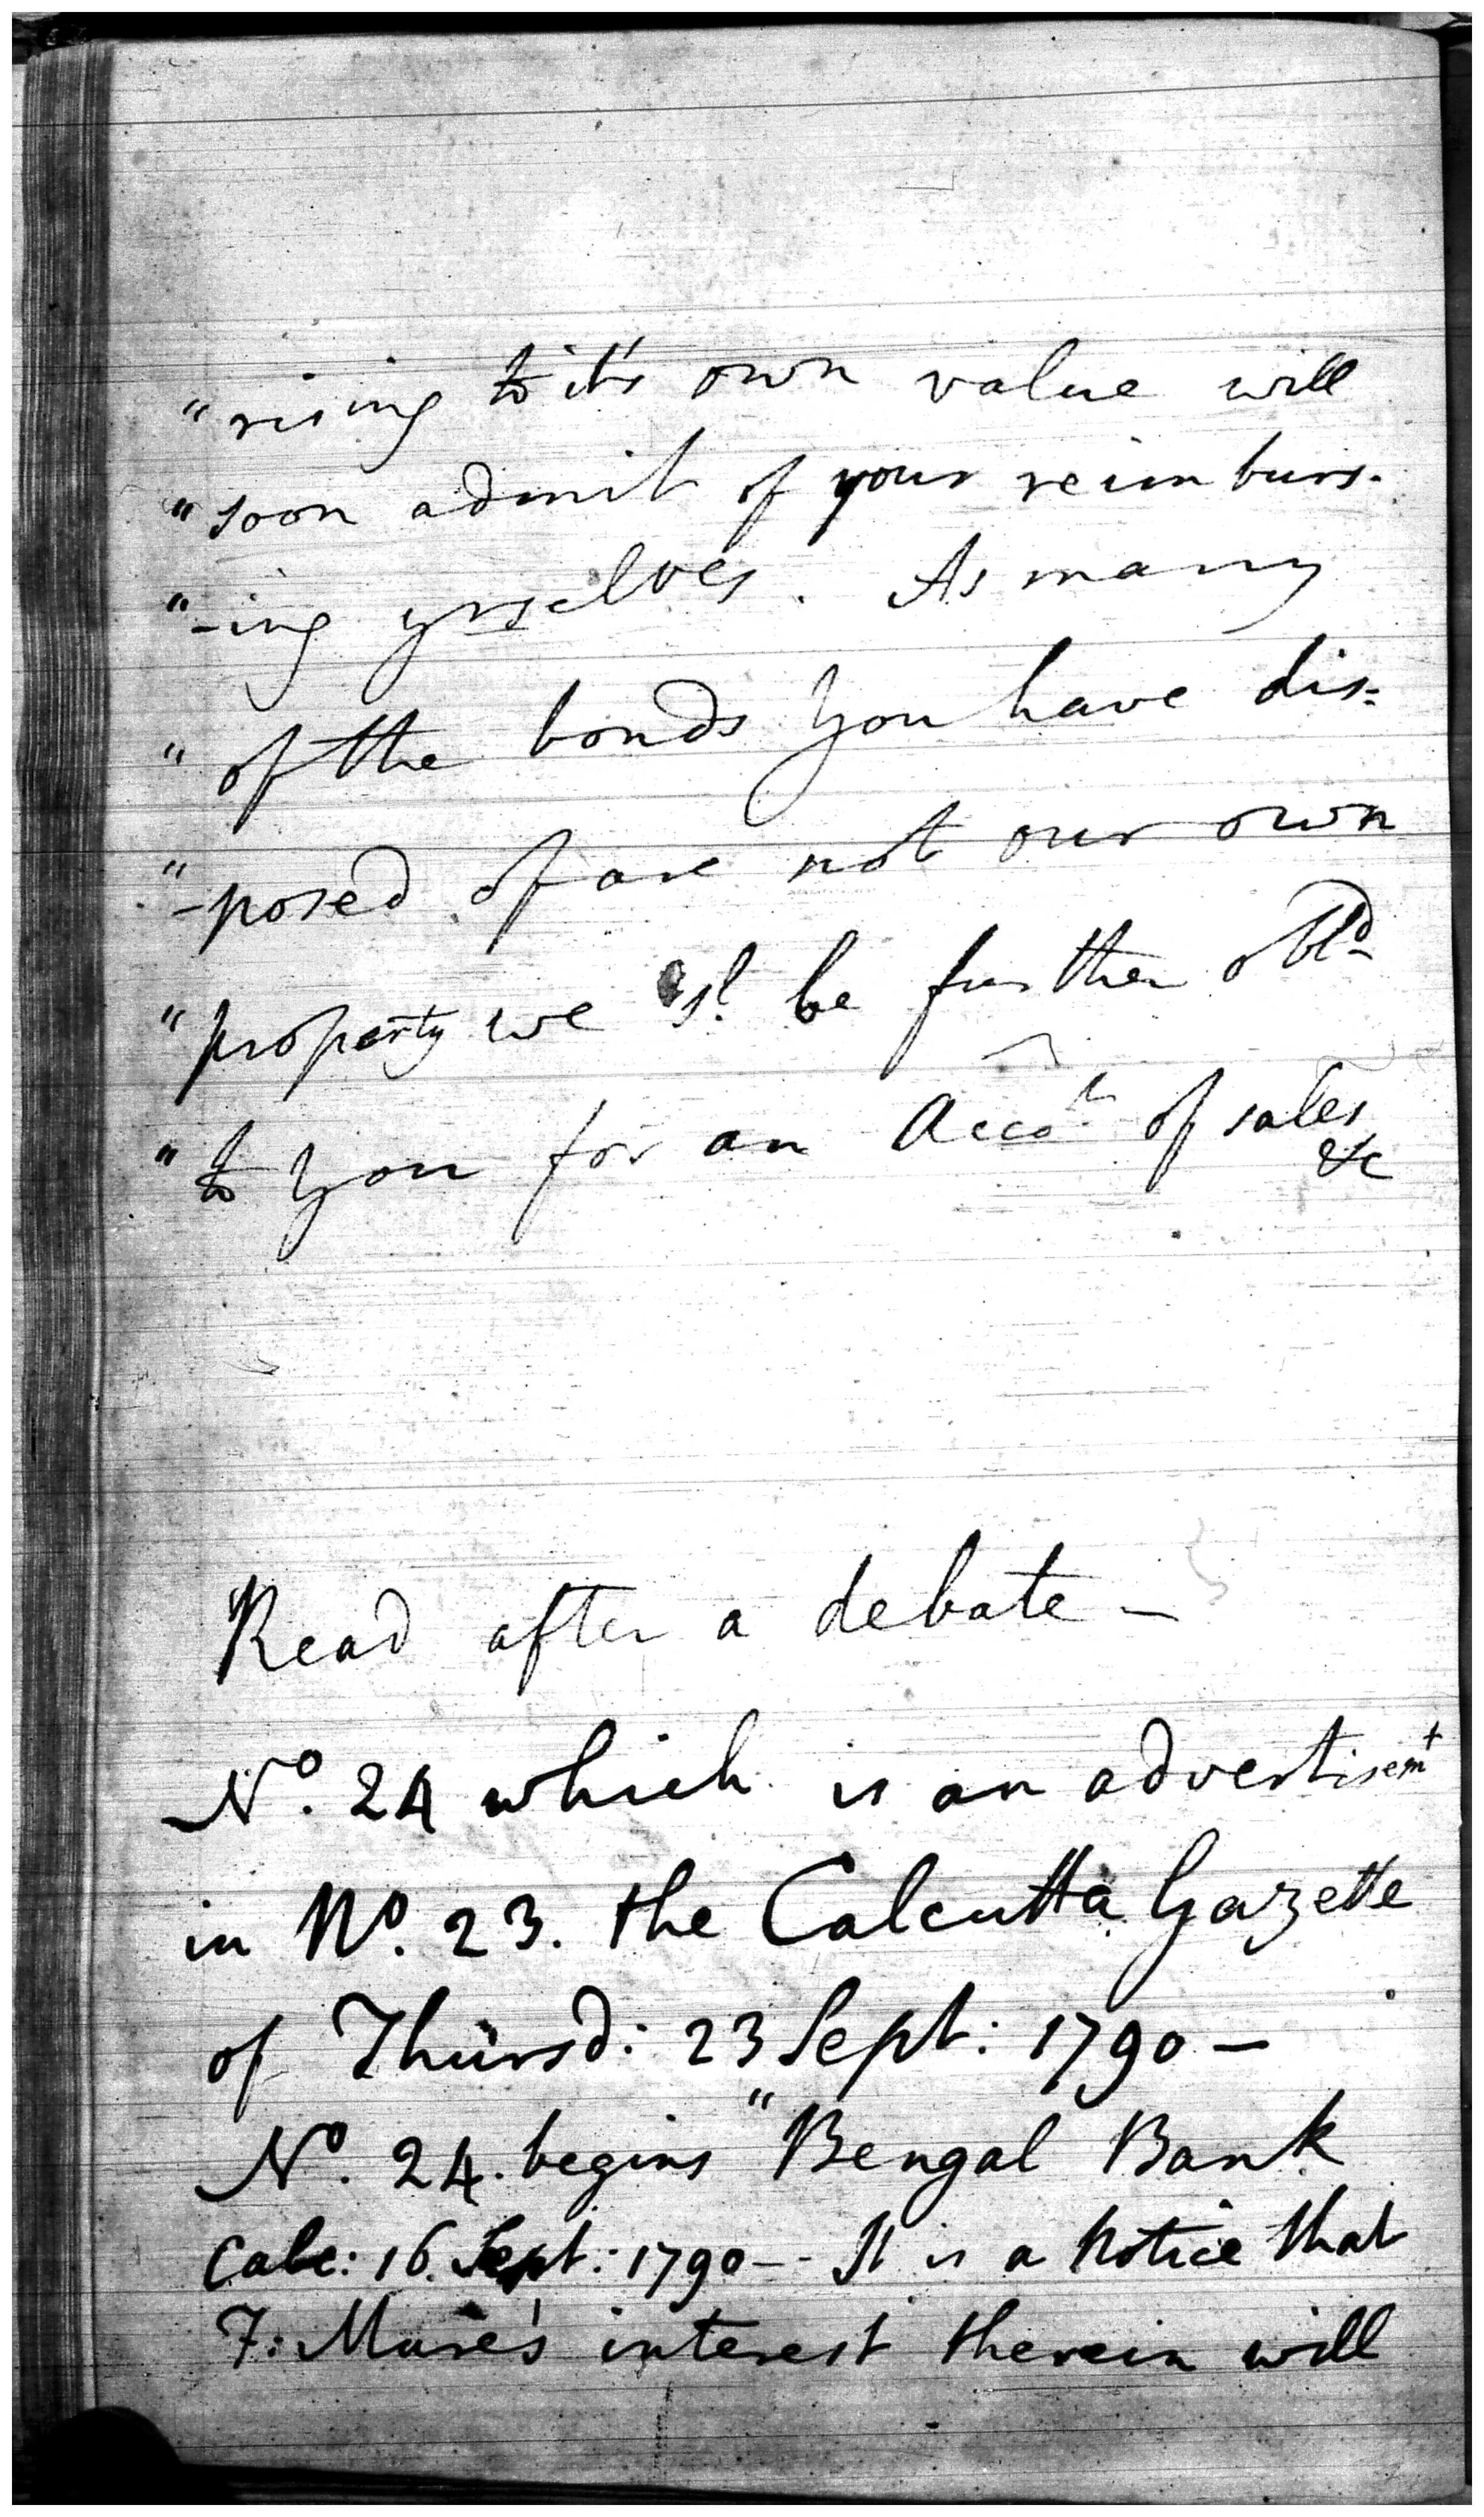 "rising to it's own value will
"soon admit of your reimburs.
"-ing yrselves. As many
"of the bonds you have dis=
"-posed of are not our own
"property we sd. be further obld
"to you for an Accot. of sales
&c
Read after a debate —
No. 24 which is an advertisemt
in No. 23. the Calcutta Gazette
of Thursd: 23 Sept: 1790 —
No. 24. begins "Bengal Bank
Calc: 16. Sept: 1790 -- It is a Notice that
F: Mure's interest therein will